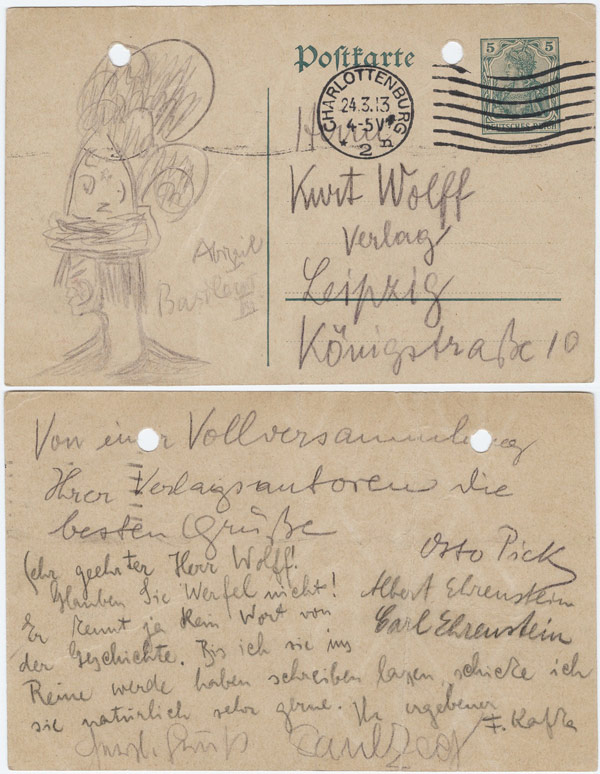 Postkarte
5 5
DEUTSCHES REICH
CHARLOTTENBURG
24.3.13
4-5V
* 2
Herrn
Kurt Wolff
Verlag
Leipzig
Königstraße 10
Abigail
Basileus III
Von einer Vollversammlung
Ihrer Verlagsautoren die
besten Grüße
Otto Pick
Albert Ehrenstein
Carl Ehrenstein
Sehr geehrter Herr Wolff!
Glauben Sie Werfel nicht!
Er kennt ja kein Wort von
der Geschichte. Bis ich sie ins
Reine werde haben schreiben lassen, schicke ich
sie natürlich sehr gerne. Ihr ergebener
F. Kafka
Gruß Paul Zech